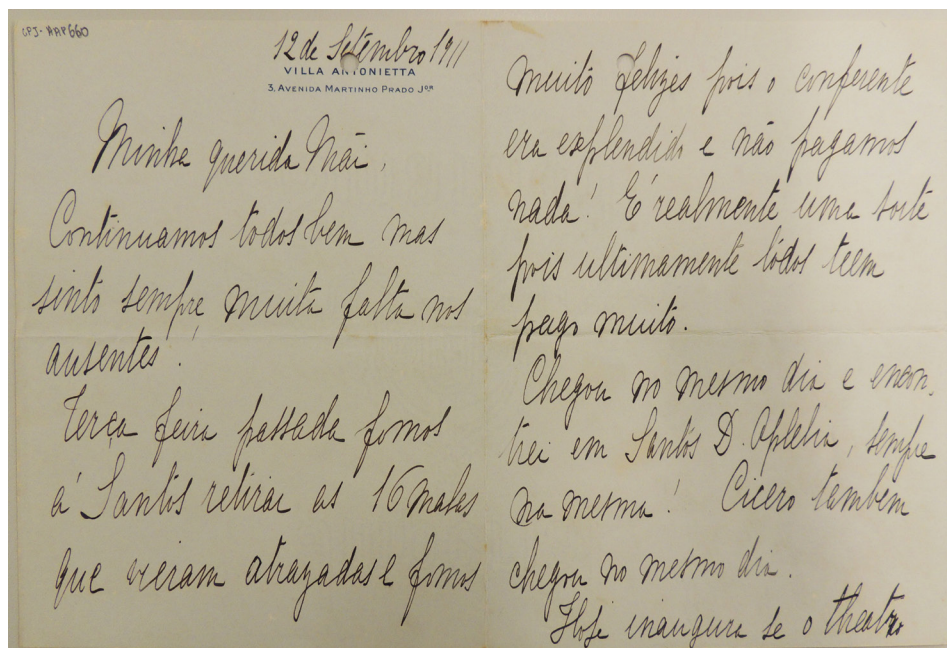 CPJ-AAP660
12 de Setembro 1911
VILLA ANTONIETTA
3, AVENIDA MARTINHO PRADO JOR
Minha querida Mãi,
Continuamos todos bem mas
sinto sempre muita falta nos
ausentes!
Terça feira passada fomos
á Santos retirar as 16 malas
que vieram atrazadas e fomos
muito felizes pois o conferente
era esplendido e não pagamos
nada! É realmente uma sorte
pois ultimamente tódos teem
pago muito.
Chegou no mesmo dia e encon-
trei em Santos D. , sempre
na mesma! Cicero tambem
chegou no mesmo dia.
Hoje inaugura se o theatro